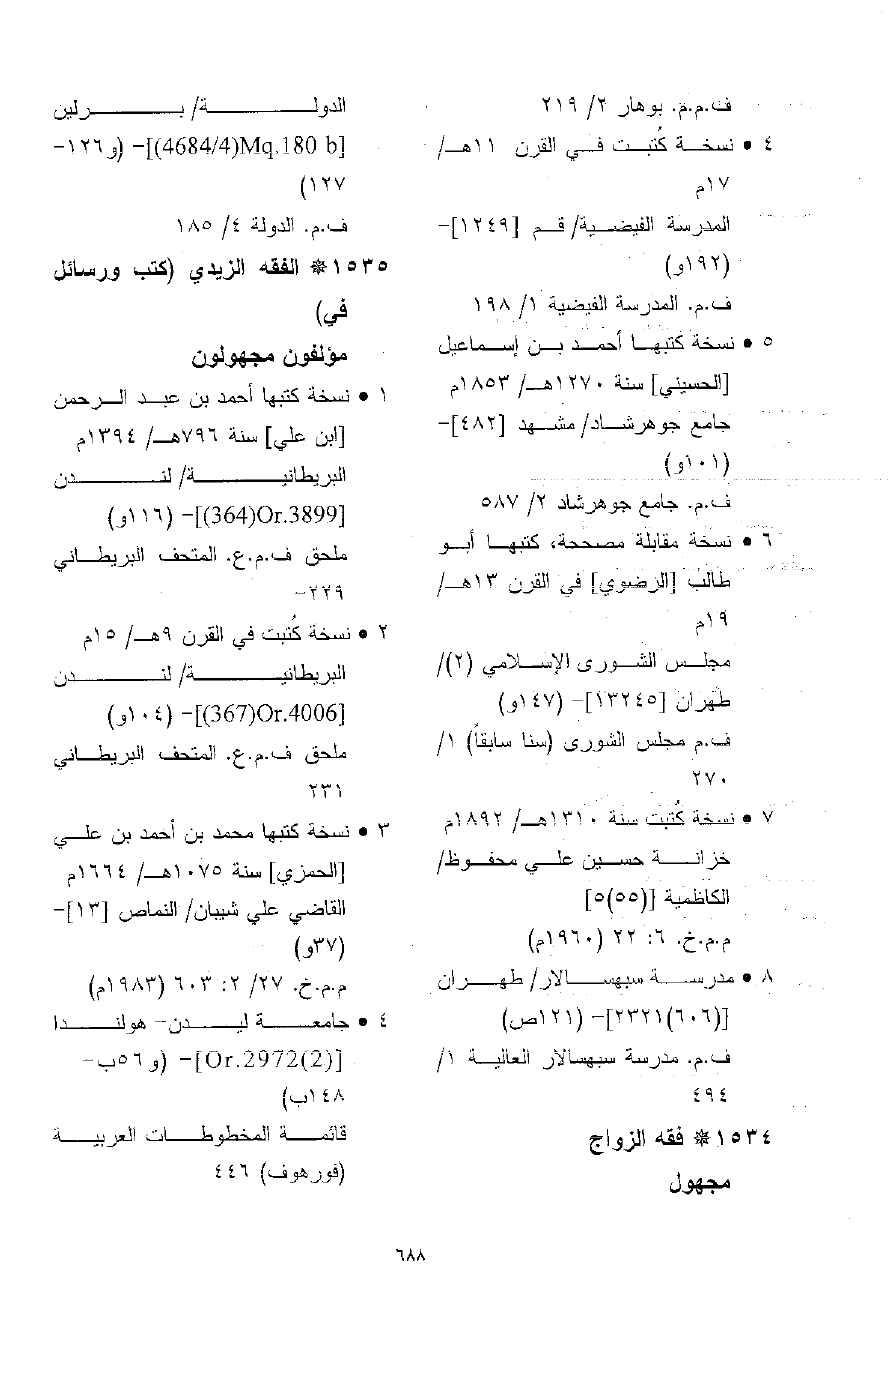 ف.م.م. بوهار ٢/ ٢١٩
٤ • نسخة كُتبت في القرن ١١هـ/
١٧م
المدرسة الفيضية/ قم [١٢٤٩]-
(١٩٢و)
ف.م. المدرسة الفيضية ١/ ١٩٨
٥ • نسخة كتبها أحمد بن إسماعيل
[الحسيني] سنة ١٢٧٠هـ/ ١٨٥٣م
جامع جوهرشاد/ مشهد [٤٨٢]-
(١٠١و)
ف.م. جامع جوهرشاد ٢/ ٥٨٧
٦ • نسخة مقابلة مصححة، كتبها أبو
طالب [الرضوي] في القرن ١٣هـ/
١٩م
مجلس الشورى الإسلامي (٢)/
طهران [١٣٢٤٥]- (١٤٧و)
ف.م مجلس الشورى (سنا سابقاً) ١/
٢٧٠
٧ • نسخة كُتبت سنة ١٣١٠هـ/ ١٨٩٢م
خزانة حسين علي محفوظ/
الكاظمية [(٥٥)٥]
م.م.خ. ٦: ٢٢ (١٩٦٠م)
٨ • مدرسة سبهسالار/ طهران
[(٦٠٦)٢٣٢١]- (١٢١ص)
ف.م. مدرسة سبهسالار العالية ١/
٤٩٤
١٥٣٤ ❊ فقه الزواج
مجهول
الدولة/ برلين
[(4684/4)Mq.180 b]- (و١٢٦-
١٢٧)
ف.م. الدولة ٤/ ١٨٥
١٥٣٥ ❊ الفقه الزيدي (كتب ورسائل
في)
مؤلفون مجهولون
١ • نسخة كتبها أحمد بن عبد الرحمن
[ابن علي] سنة ٧٩٦هـ/ ١٣٩٤م
البريطانية/ لندن
[(364)Or.3899]- (١١٦و)
ملحق ف.م.ع. المتحف البريطاني
٢٢٩-
٢ • نسخة كُتبت في القرن ٩هـ/ ١٥م
البريطانية/ لندن
[(367)Or.4006]- (١٠٤و)
ملحق ف.م.ع. المتحف البريطاني
٢٣١
٣ • نسخة كتبها محمد بن أحمد بن علي
[الحمزي] سنة ١٠٧٥هـ/ ١٦٦٤م
القاضي علي شيبان/ النماص [١٣]-
(٣٧و)
م.م.خ. ٢٧/ ٢: ٦٠٣ (١٩٨٣م)
٤ • جامعة ليدن- هولندا
[Or.2972(2)]- (و٥٦ب-
١٤٨ب)
قائمة المخطوطات العربية
(فورهوف) ٤٤٦
٦٨٨